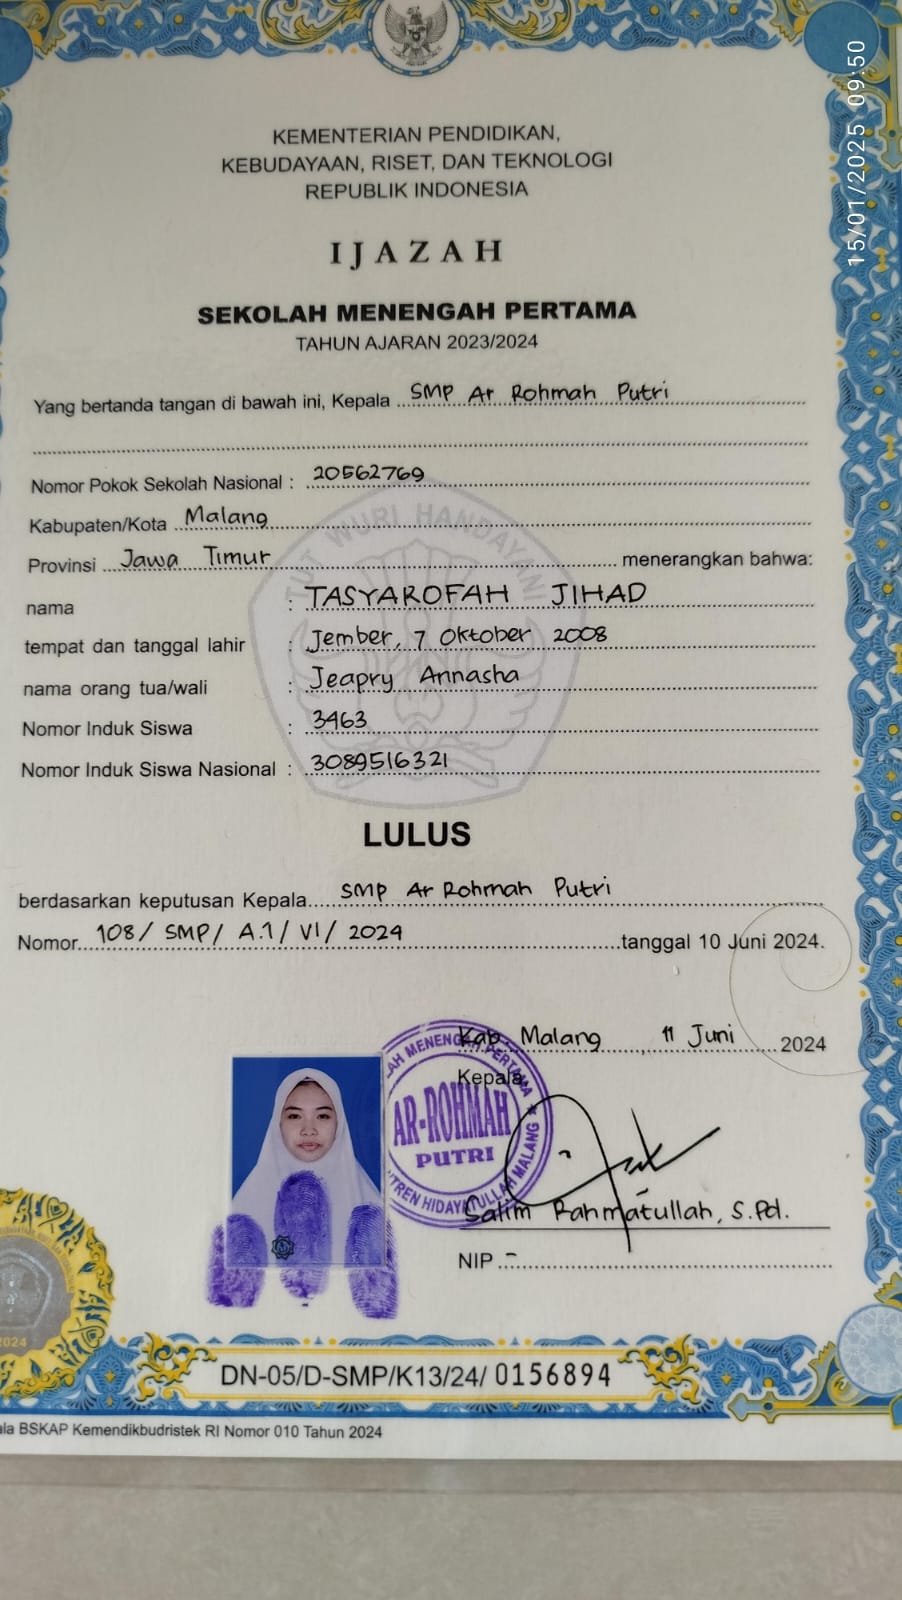 15/01/2025 09:50
KEMENTERIAN PENDIDIKAN,
KEBUDAYAAN, RISET, DAN TEKNOLOGI
REPUBLIK INDONESIA
IJAZAH
SEKOLAH MENENGAH PERTAMA
TAHUN AJARAN 2023/2024
Yang bertanda tangan di bawah ini, Kepala SMP Ar Rohmah Putri
Nomor Pokok Sekolah Nasional : 20562769
TUT WURI HANDAYANI
Kabupaten/Kota Malang
Provinsi Jawa Timur menerangkan bahwa:
nama : TASYAROFAH JIHAD
tempat dan tanggal lahir : Jember, 7 Oktober 2008
nama orang tua/wali : Jeapry Annasha
Nomor Induk Siswa : 3463
Nomor Induk Siswa Nasional : 3089516321
LULUS
berdasarkan keputusan Kepala SMP Ar Rohmah Putri
Nomor 108/ SMP/ A.1/ VI/ 2024 tanggal 10 Juni 2024.
Kab. Malang, 11 Juni 2024
Kepala
AH MENENGAH PERTAMA
AR-ROHMAH
PUTRI
TREN HIDAYATULLAH MALANG
Salim Rahmatullah, S.Pd.
NIP. -
2024
DN-05/D-SMP/K13/24/ 0156894
ala BSKAP Kemendikbudristek RI Nomor 010 Tahun 2024